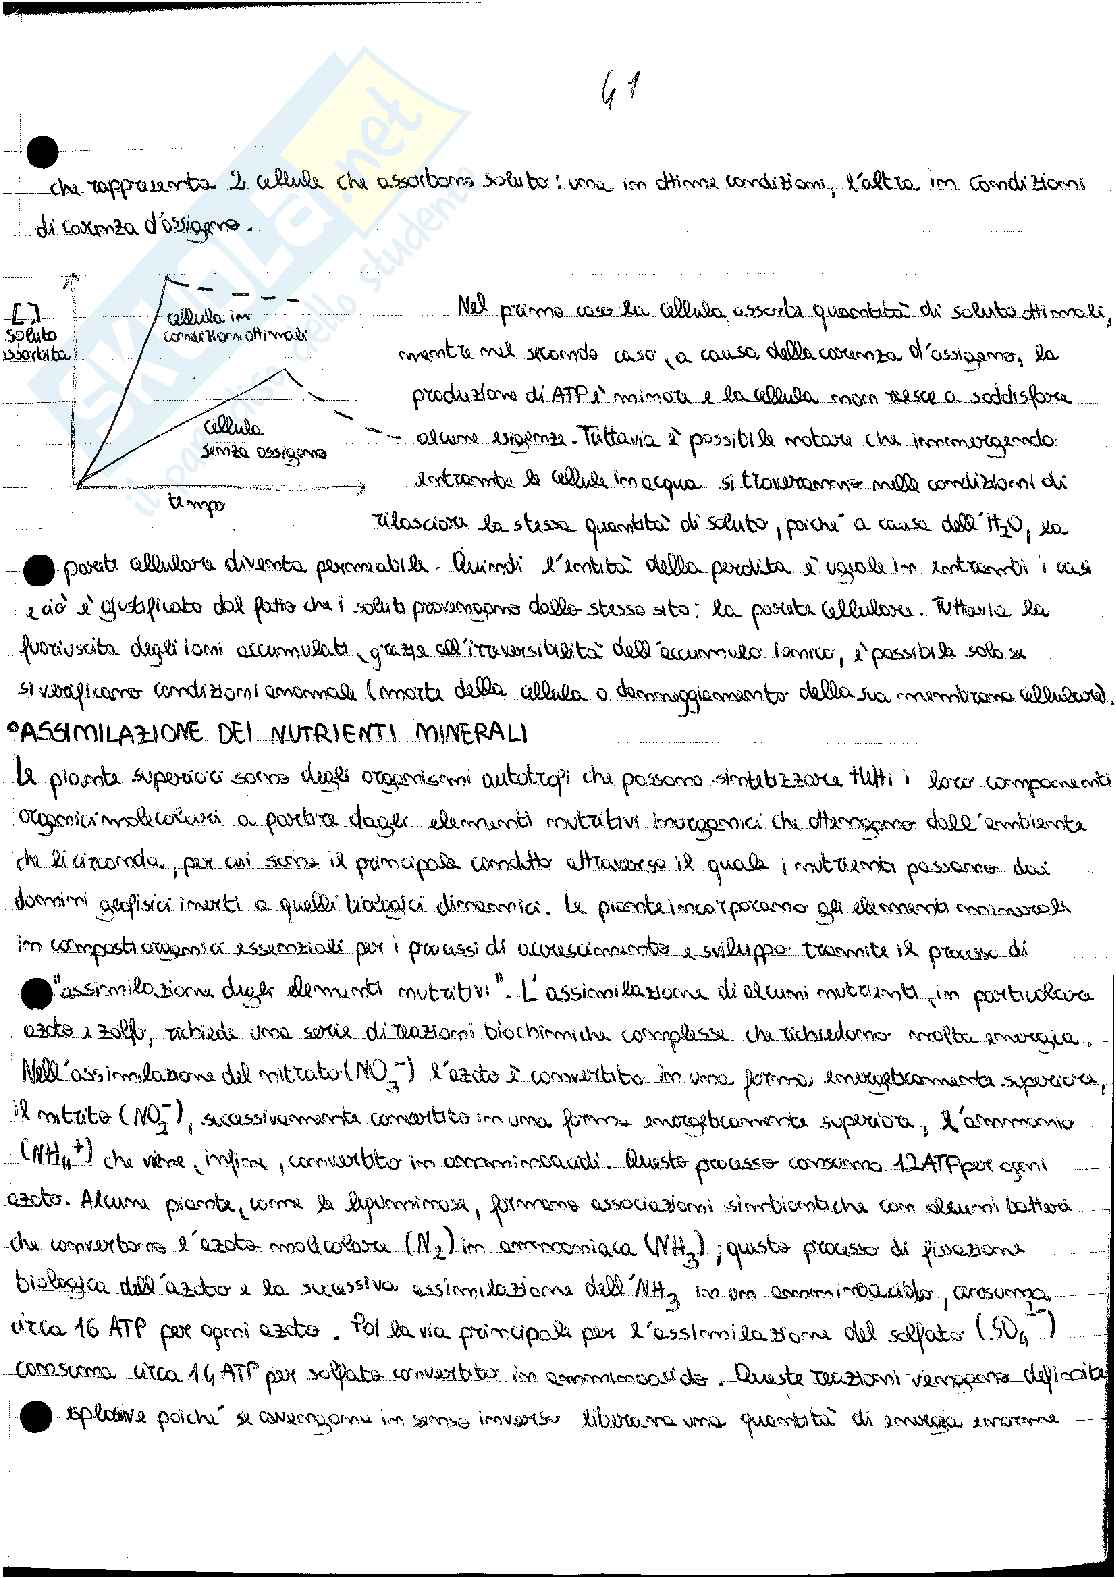 41
che rappresenta 2 cellule che assorbono soluto: una in ottime condizioni, l'altra in condizioni
di carenza d'ossigeno.
[ ]
soluto
assorbita
cellula in
condizioni ottimali
cellula
senza ossigeno
tempo
Nel primo caso la cellula assorbe quantità di soluto ottimali,
mentre nel secondo caso, a causa della carenza d'ossigeno, la
produzione di ATP è minore e la cellula non riesce a soddisfare
alcune esigenze. Tuttavia è possibile notare che immergendo
entrambe le cellule in acqua si troveranno nelle condizioni di
rilasciare la stessa quantità di soluto, poiché a causa dell'H₂O, la
parete cellulare diventa permeabile. Quindi l'entità della perdita è uguale in entrambi i casi
e ciò è giustificato dal fatto che i soluti provengono dallo stesso sito: la parete cellulare. Tuttavia la
fuoriuscita degli ioni accumulati, grazie all'irreversibilità dell'accumulo ionico, è possibile solo se
si verificano condizioni anormali (morte della cellula o danneggiamento della sua membrana cellulare).
°ASSIMILAZIONE DEI NUTRIENTI MINERALI
Le piante superiori sono degli organismi autotrofi che possono sintetizzare tutti i loro componenti
organici molecolari a partire dagli elementi nutritivi inorganici che ottengono dall'ambiente
che li circonda, per cui sono il principale condotto attraverso il quale i nutrienti passano dai
domini geofisici inerti a quelli biologici dinamici. Le piante incorporano gli elementi minerali
in composti organici essenziali per i processi di accrescimento e sviluppo tramite il processo di
"assimilazione degli elementi nutritivi". L'assimilazione di alcuni nutrienti, in particolare
azoto e zolfo, richiede una serie di reazioni biochimiche complesse che richiedono molta energia.
Nell'assimilazione del nitrato (NO₃⁻) l'azoto è convertito in una forma energeticamente superiore,
il nitrito (NO₂⁻), sucessivamente convertito in una forma energeticamente superiore, l'ammonio
(NH₄⁺) che viene, infine, convertito in amminoacidi. Questo processo consuma 12 ATP per ogni
azoto. Alcune piante, come le leguminose, formano associazioni simbiontiche con alcuni batteri
che convertono l'azoto molecolare (N₂) in ammoniaca (NH₃); questo processo di fissazione
biologica dell'azoto e la sucessiva assimilazione dell'NH₃ in un amminoacido, consuma
circa 16 ATP per ogni azoto. Poi la via principale per l'assimilazione del solfato (SO₄²⁻)
consuma circa 14 ATP per solfato convertito in amminoacido. Queste reazioni vengono definite
esplosive poiché se avvengono in senso inverso liberano una quantità di energia enorme
SKUOLA.net